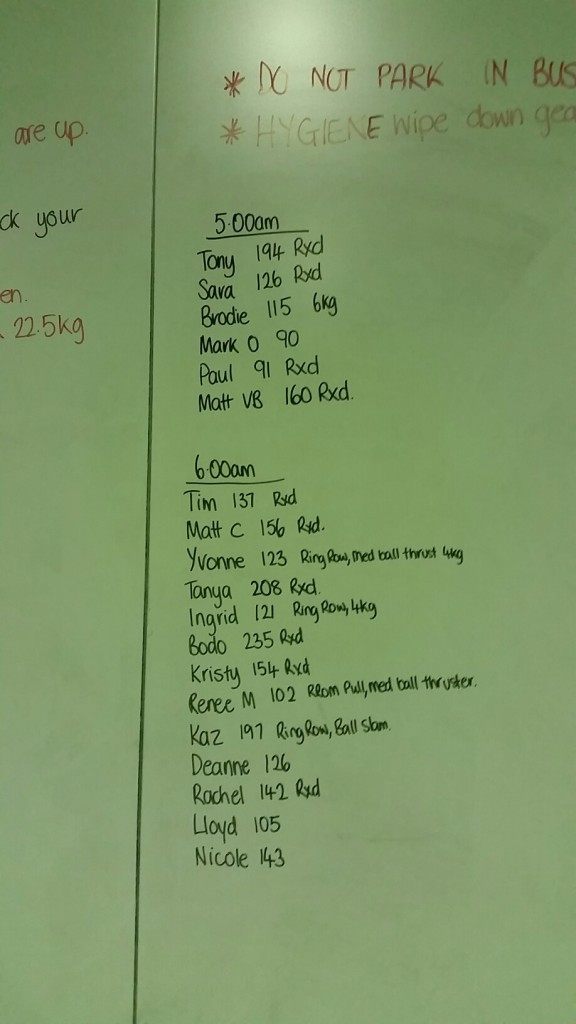 * DO NOT PARK IN BUS
* HYGIENE wipe down gea
are up.
ck your
en.
22.5kg
5.00am
Tony 194 Rxd
Sara 126 Rxd
Brodie 115 6kg
Mark O 90
Paul 91 Rxd
Matt VB 160 Rxd.
6.00am
Tim 137 Rxd
Matt C 156 Rxd.
Yvonne 123 Ring Row, med ball thrust 4kg
Tanya 208 Rxd.
Ingrid 121 Ring Row, 4kg
Bodo 235 Rxd
Kristy 154 Rxd
Renee M 102 RRom Pull, med ball thruster.
Kaz 197 Ring Row, Ball Slam.
Deanne 126
Rachel 142 Rxd
Lloyd 105
Nicole 143